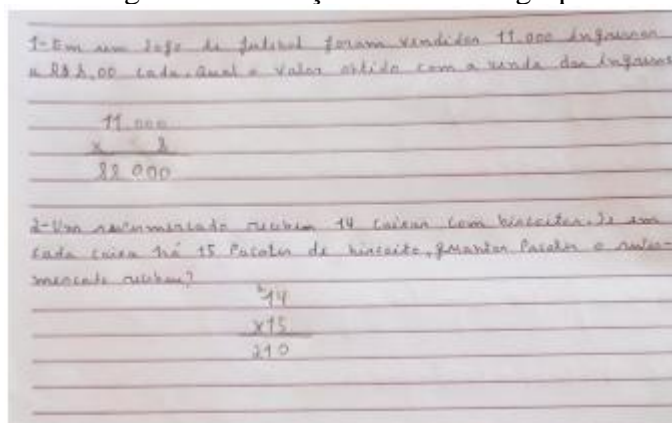 1-Em um jogo de futebol foram vendidos 11.000 ingressos
a R$ 8,00 cada. Qual o valor obtido com a venda dos ingressos
11.000
x 8
88 000
2-Um supermercado recebeu 14 caixas com biscoitos. Se em
cada caixa há 15 Pacotes de biscoito, quantos Pacotes o super-
mercado recebeu?
2
14
x15
210